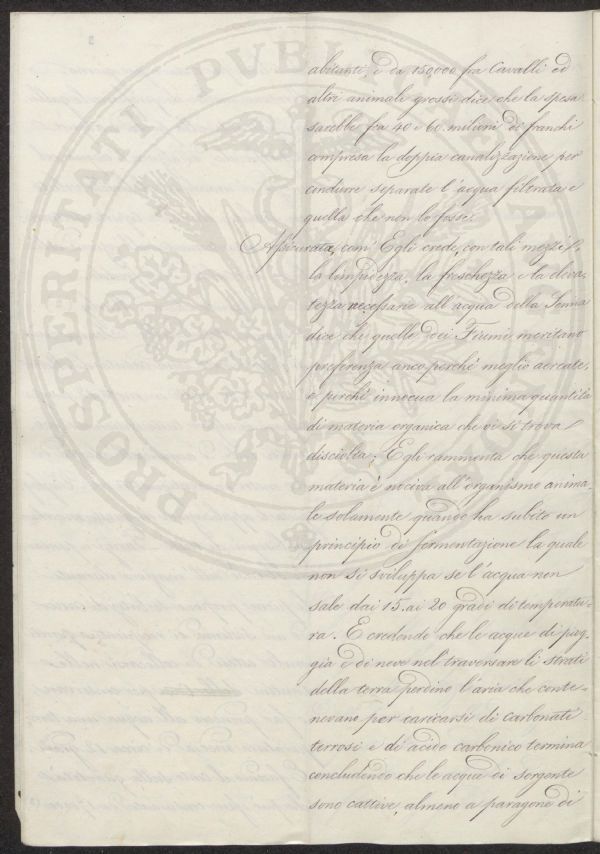 abitanti, e da 150,000 fra Cavalli ed
altri animali grossi dice che la spesa
sarebbe fra 40 e 60 milioni di franchi
compresa la doppia canalizzazione per
condurre separate l'acqua filtrata e
quella che non lo fosse.
Assicurata, com'Egli crede, con tali mezzi
la limpidezza, la freschezza e la
necessarie all'acqua della Senna
dice che quelle dei Fiumi meritano
preferenza anco perché meglio aereate,
e perché innocua la minima quantità
di materia organica che vi si trova
disciolta; Egli rammenta che questa
materia è nociva all'organismo anima-
le solamente quando ha subito un
principio di fermentazione la quale
non si sviluppa se l'acqua non
sale dai 15. ai 20 gradi di temperatu-
ra. E credendo che le acque di piog-
gia e di neve nel traversare li strati
della terra perdino l'aria che conte-
nevano per caricarsi di carbonati
terrosi e di acido carbonico termina
concludendo che le acque di sorgente
sono cattive, almeno a paragone di
PROSPERITATI PVBLICAE